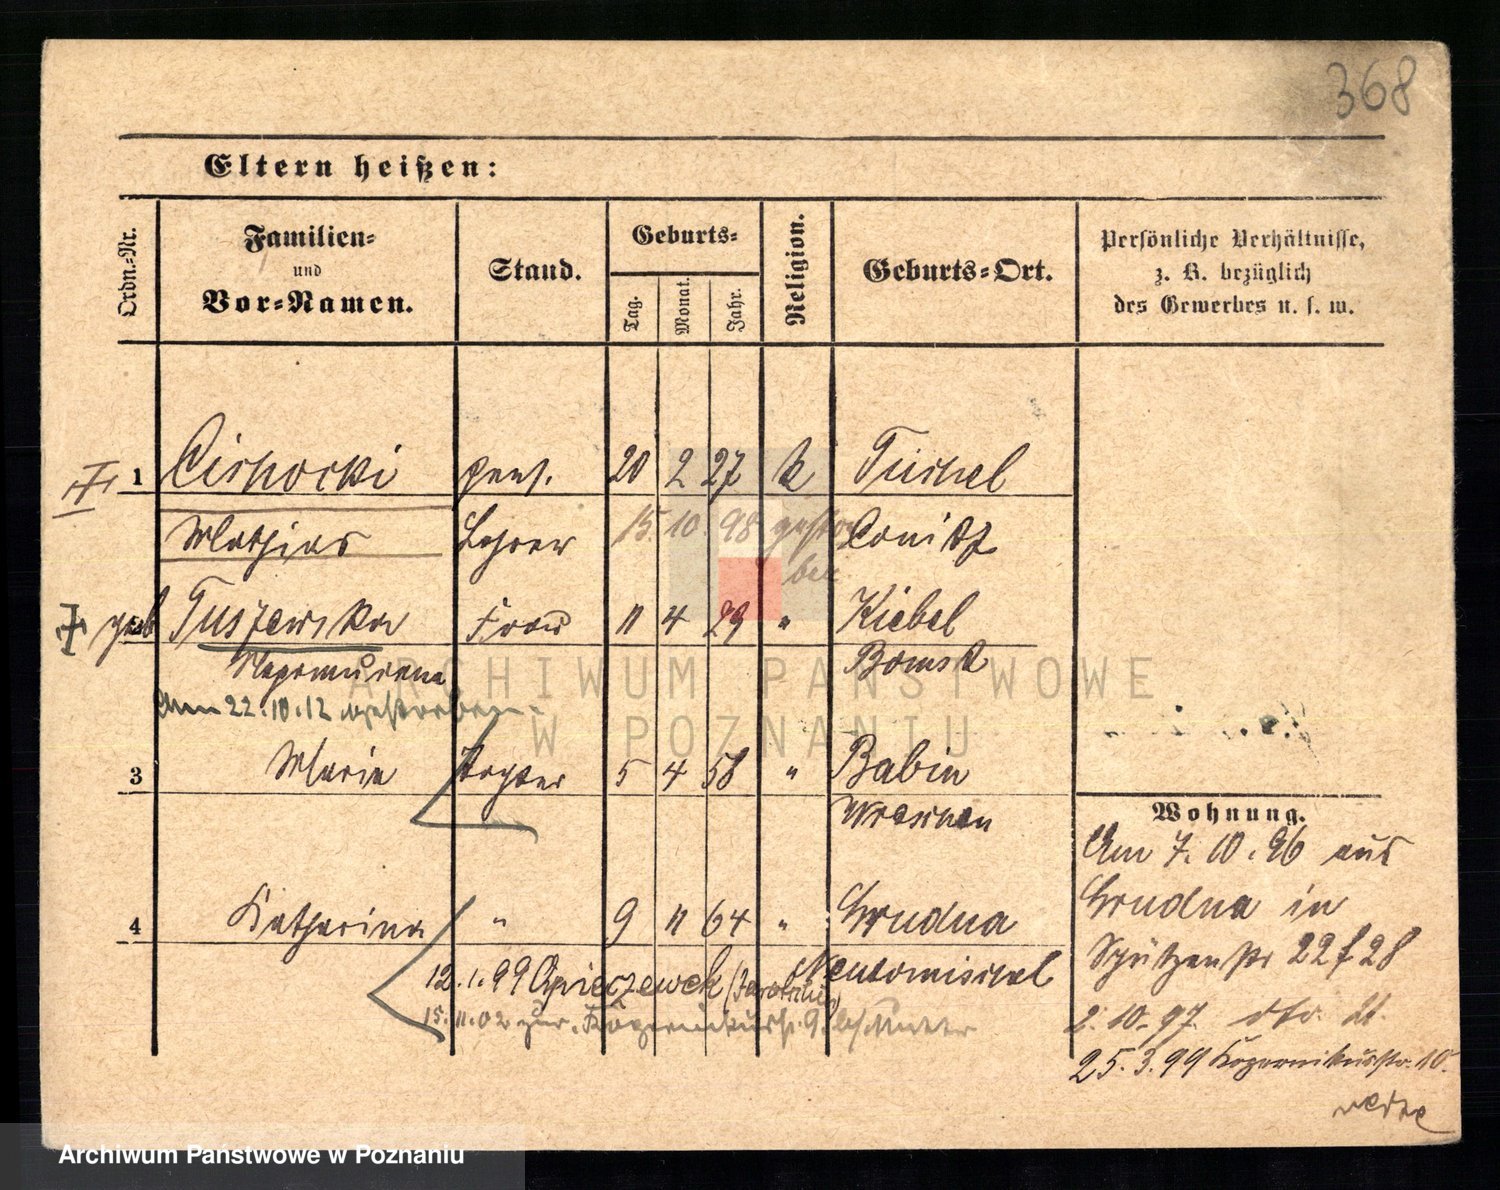 368
Eltern heißen:
Ordn.-Nr.
Familien-
und
Vor-Namen.
Stand.
Geburts-
Tag.
Monat.
Jahr.
Religion.
Geburts-Ort.
Persönliche Verhältnisse,
z. B. bezüglich
des Gewerbes u. s. w.
1 Cichocki pens. 20 2 27 k Tuchel
Mathias Lehrer 15. 10. 98 gestor Conitz
ben
geb Tuszewska Frau 11 4 29 " Kiebel
Nepomucena Bomst
Am 22.10.12 gestorben
3 Maria Tochter 5 4 58 " Babin
Wreschen
4 Katharina " 9 11 64 " Grudna
Neutomischel
12.1.99 (Jarotschin)
15.11.02 zur. 9. b/Mutter
Wohnung.
Am 7.10.96 aus
Grudna in
Schützenstr 22/28
2.10.97. dto. 21.
25.3.99 Kopernikusstr. 10.
ARCHIWUM PAŃSTWOWE
W POZNANIU
Archiwum Państwowe w Poznaniu